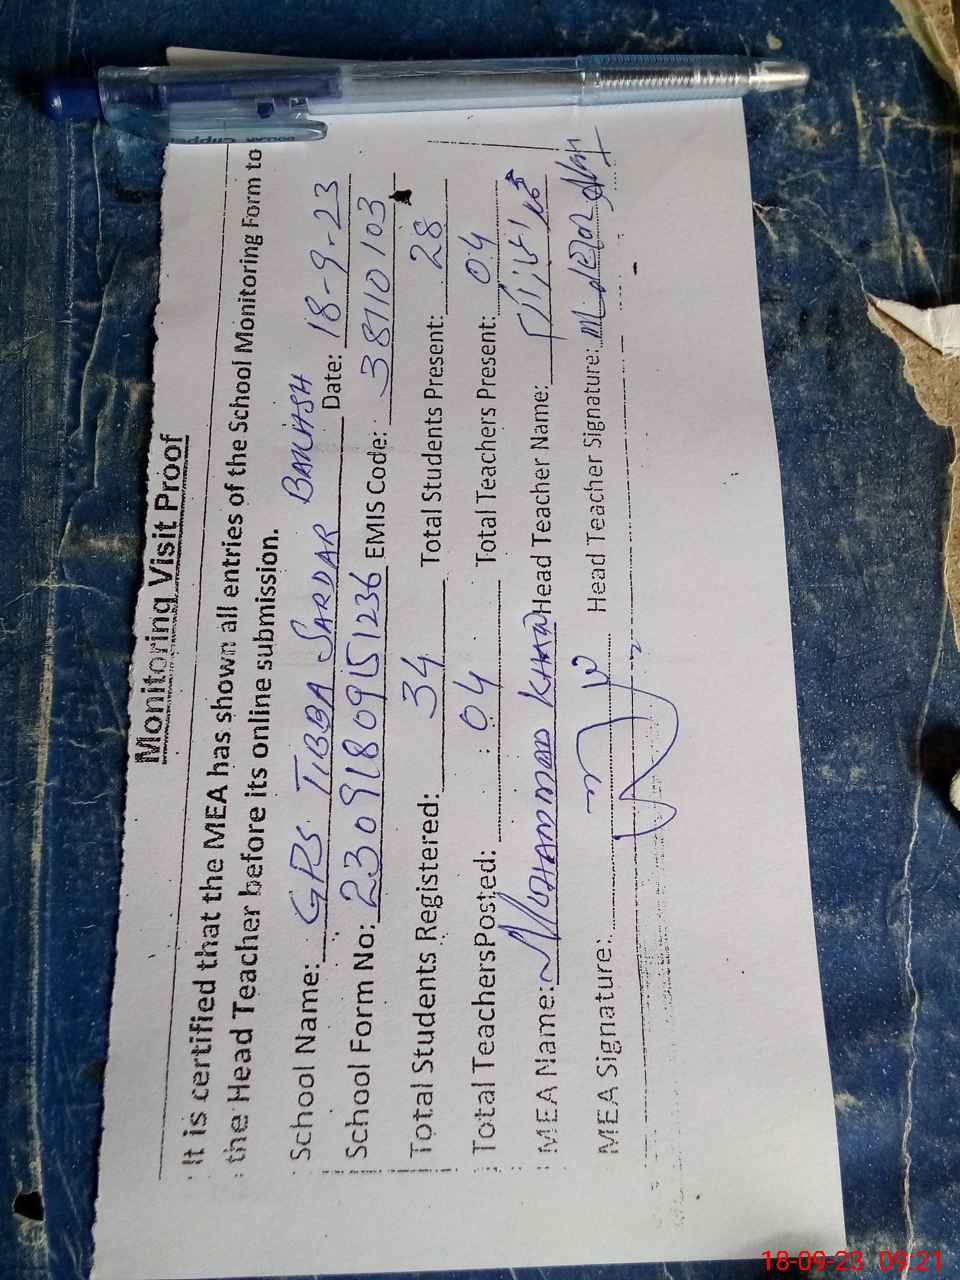 Monitoring Visit Proof
It is certified that the MEA has shown all entries of the School Monitoring Form to
the Head Teacher before its online submission.
School Name: GPS TIBBA SARDAR BAKHSH Date: 18-9-23
School Form No: 2309180951236 EMIS Code: 38110103
Total Students Registered: 34 Total Students Present: 28
Total TeachersPosted: 04 Total Teachers Present: 04
MEA Name: MOHAMMAD KHAN Head Teacher Name:
MEA Signature: Head Teacher Signature:
18-09-23 09:21